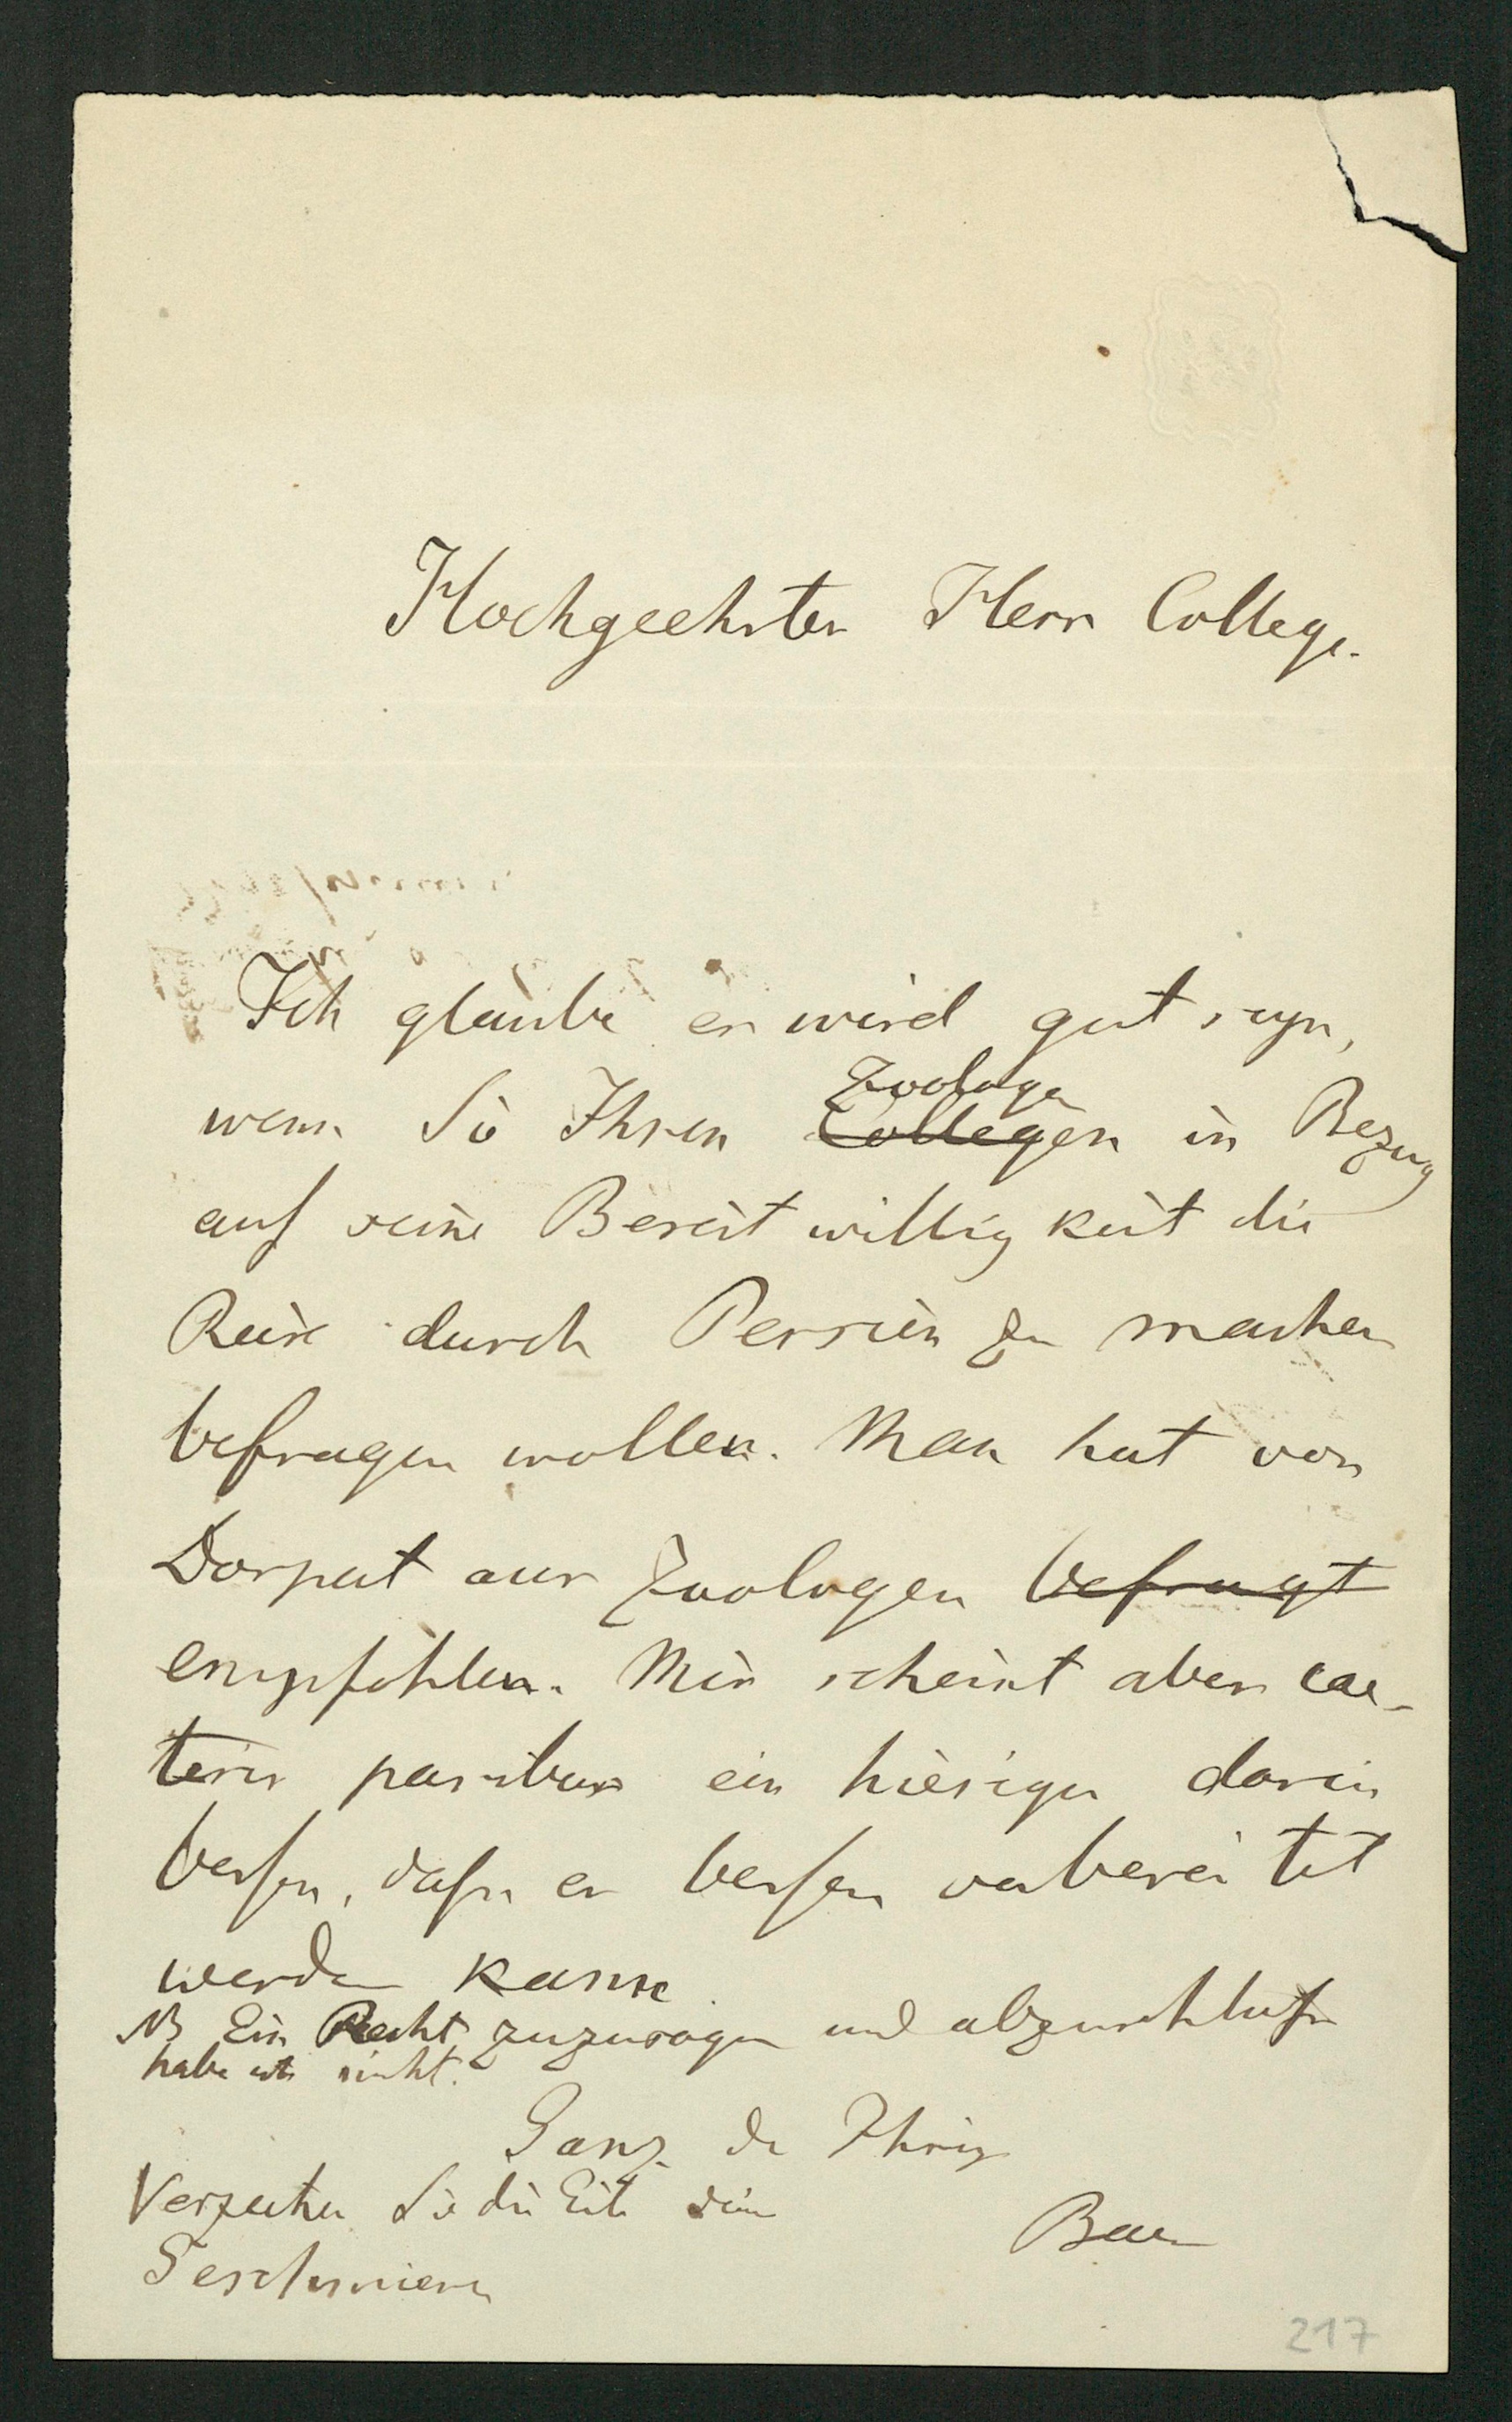 Hochgeehrter Herr College.
Ich glaube es wird gut seyn,
wenn Sie Ihren Collegen Zoologen in Bezug
auf seine Bereitwilligkeit die
Reise durch Persien zu machen
befragen wollen. Man hat von
Dorpat aus Zoologen befragt
empfohlen. Mir scheint aber cae-
teris paribus ein hiesiger darin
besser, dass er besser vorbereitet
werden kann
NB Ein Recht zuzusagen und abzuschliessen
habe ich nicht.
Ganz der Ihrige
Verzeihen Sie die Eile
Baer
Geschmiere
217